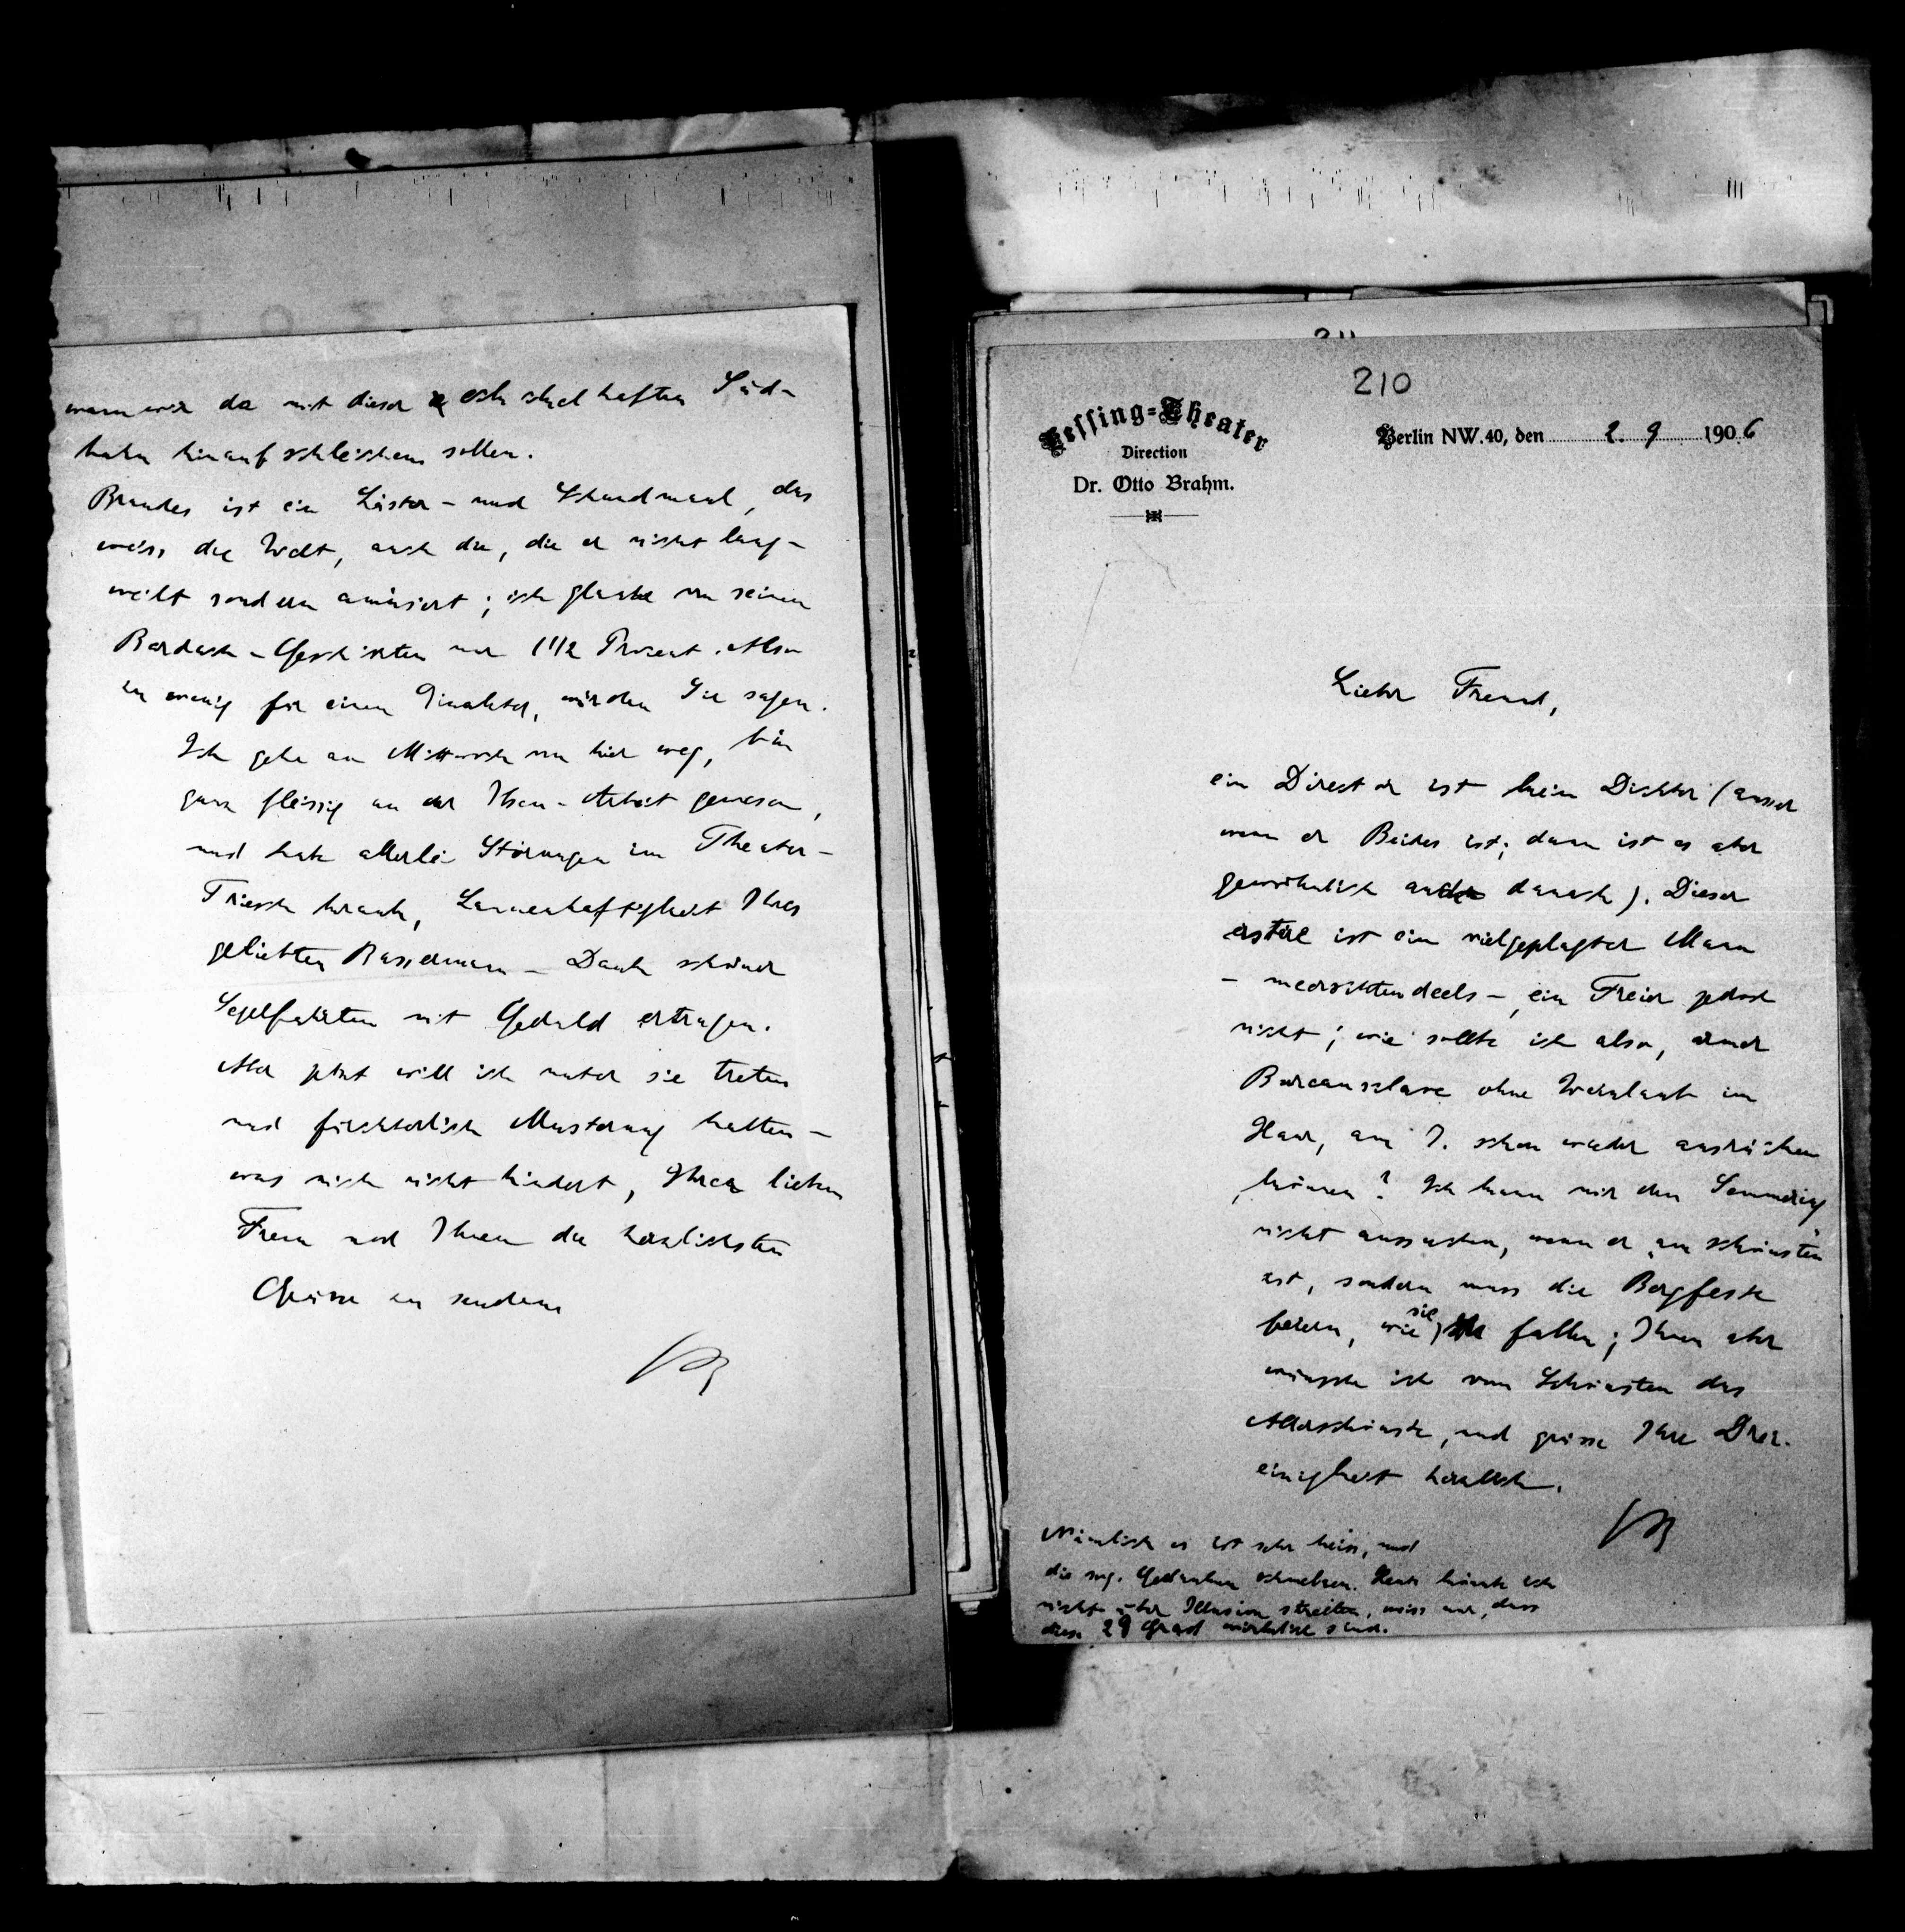 wann wir da mit dieser ekelhaften Süd-
bahn hinaufschleichen sollen.
Brandes ist ein Läster- und Schandmaul, das
weiss die Welt, auch die, die er nicht lang-
weilt sondern amüsiert; ich glaube von seinen
Geschichten nur 1 1/2 Prozent. Also
zu wenig für einen Einakter, würden Sie sagen.
Ich gehe am Mittwoch von hier weg, bin
ganz fleissig an der Ibsen-Arbeit gewesen,
und habe allerlei Störungen im Theater -
Triesch krank, Launenhaftigkeit Ihres
geliebten Bassermann - Dank schöner
Segelfahrten mit Geduld ertragen.
Aber jetzt will ich unter sie treten
und fürchterlich Musterung halten -
was mich nicht hindert, Ihrer lieben
Frau und Ihnen die herzlichsten
Grüsse zu senden
210
Lessing-Theater
Direction
Dr. Otto Brahm.
Berlin NW. 40, den 2. 9 1906
Lieber Freund,
ein Director ist kein Dichter (ausser
wenn er Beides ist; dann ist es aber
gewöhnlich auch danach). Dieser
erstere ist ein vielgeplagter Mann
- meerschtendeels -, ein Freier jedoch
nicht; wie sollte ich also, armer
Bureausclave ohne Weinlaub im
Haar, am 7. schon wieder ausrücken
können? Ich kann mir den Semmering
nicht aussuchen, wenn er am schönsten
ist, sondern muss die Bergfeste
feiern, wie sie fallen; Ihnen aber
wünsche ich vom Schönsten das
Allerschönste, und grüsse Ihre Drei-
einigkeit herzlich.
Nämlich es ist sehr heiss, und
die sog. Gedanken schmelzen. Heute könnte ich
nicht über Illusion streiten, weiss nur, dass
diese 29 Grad wirklich sind.